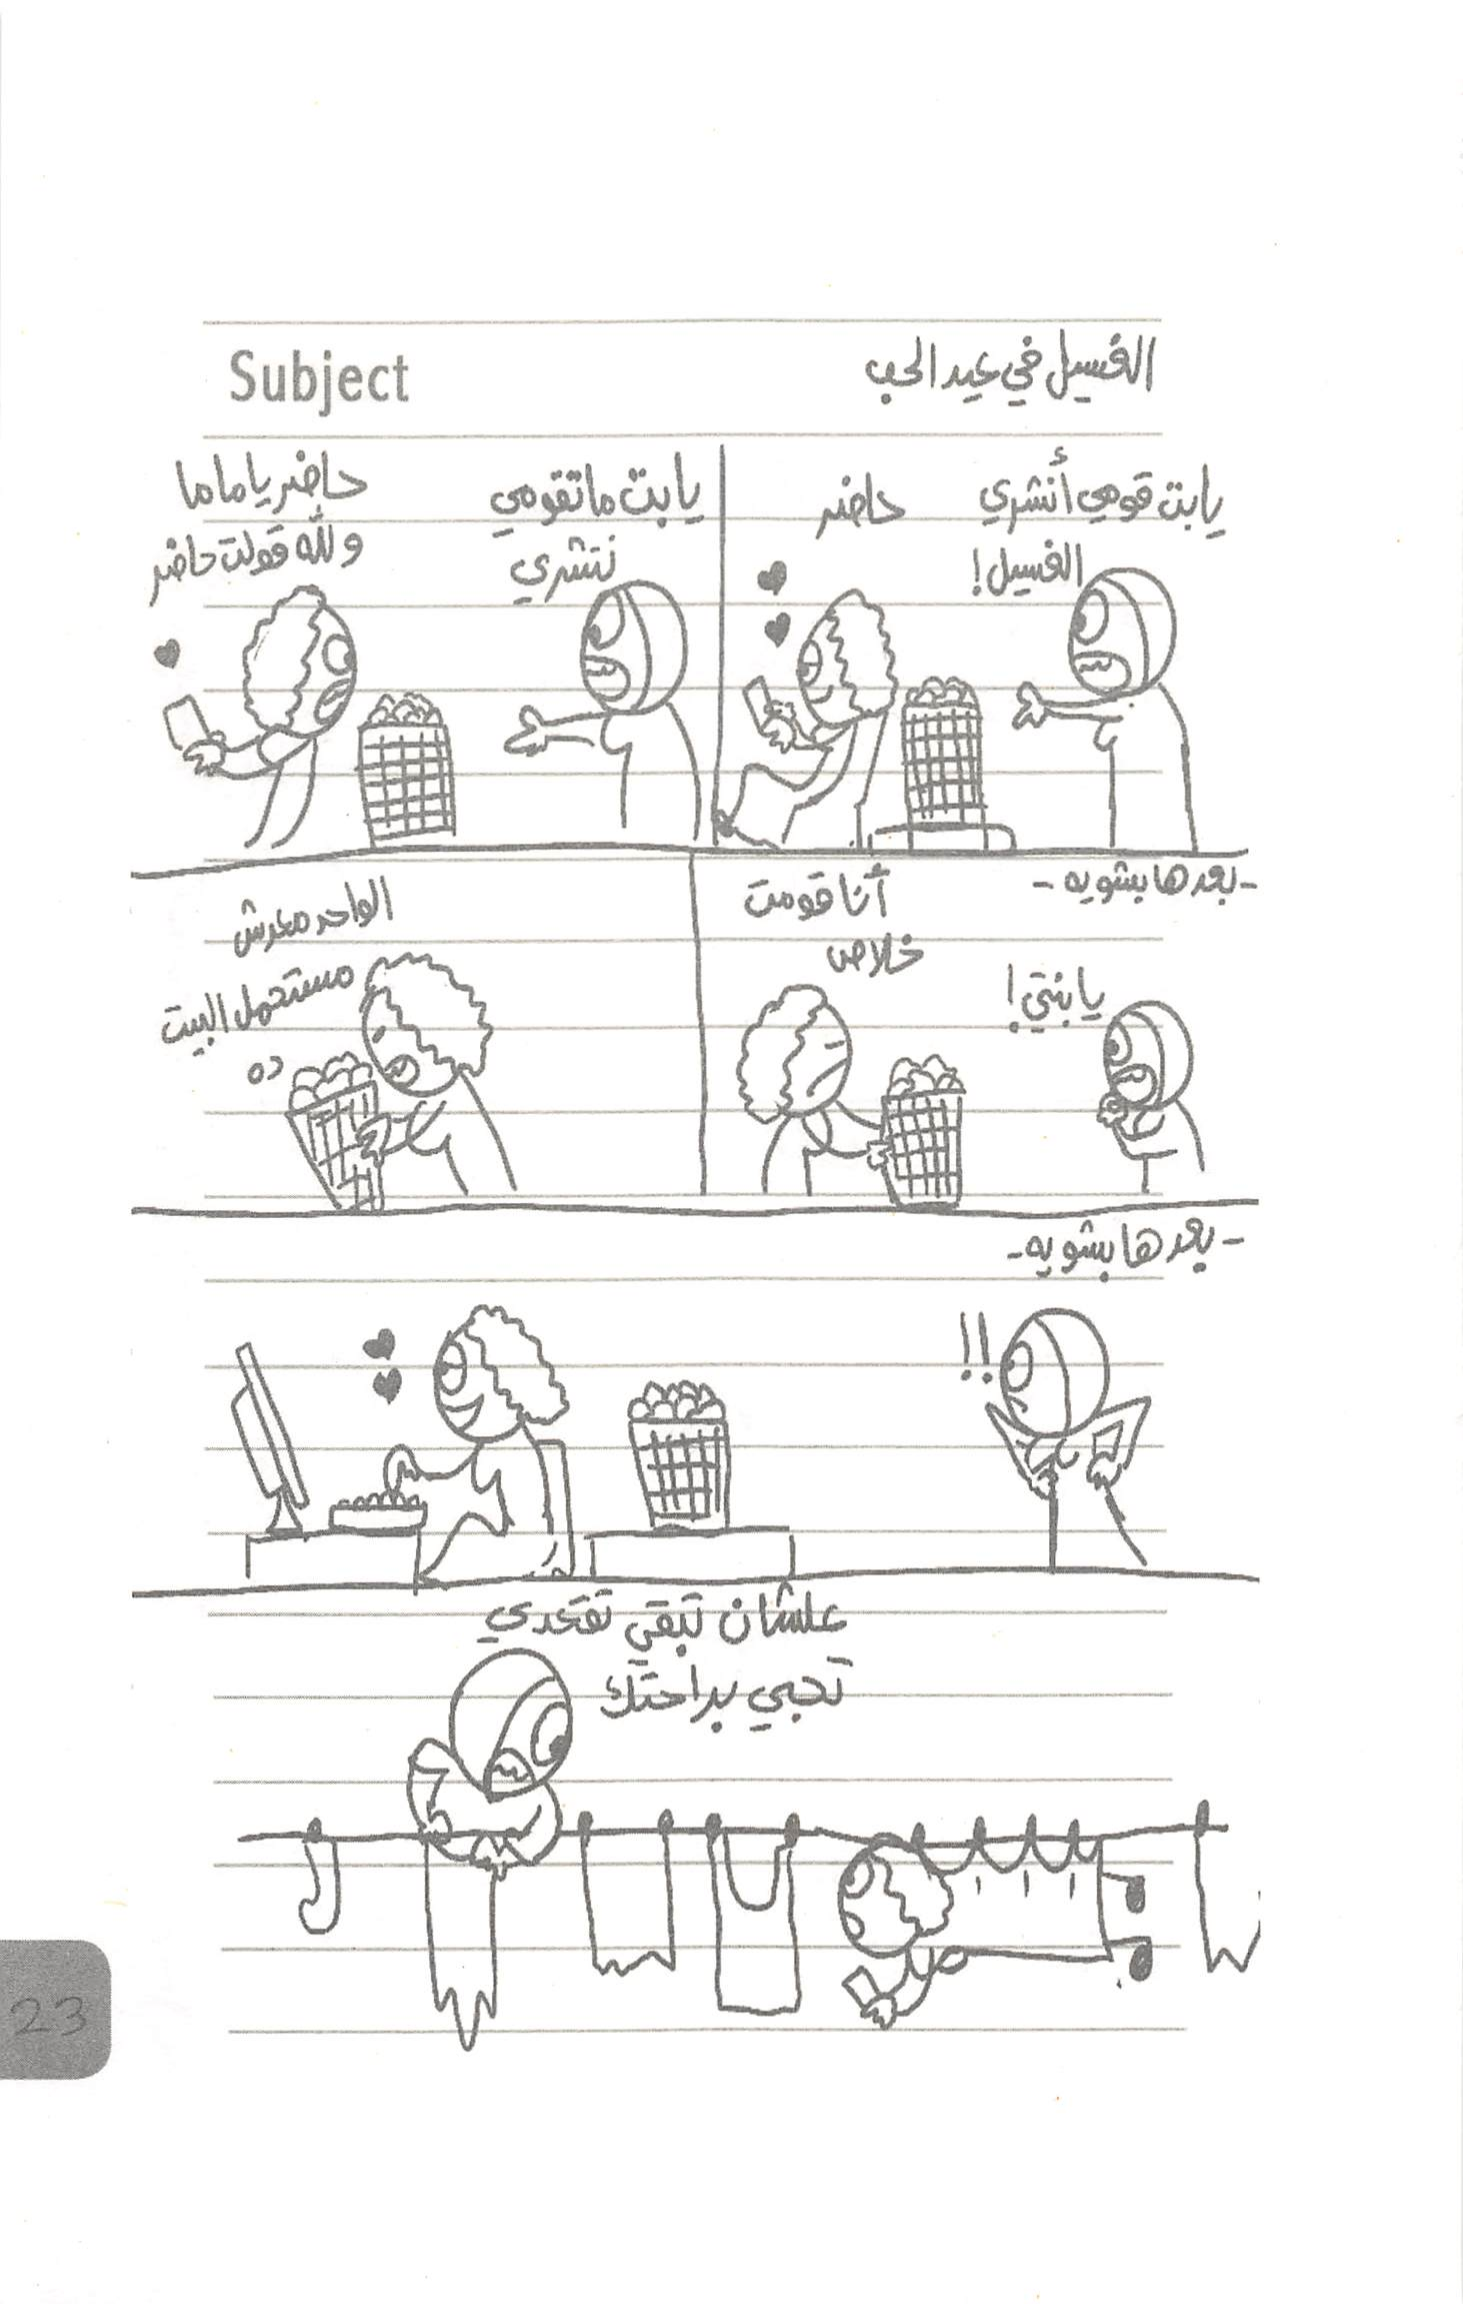 Subject
الغسيل في عيد الحب
يا بت قومي أنشري
الغسيل!
حاضر
يا بت ما تقومي
تنشري
حاضر يا ماما
والله قولت حاضر
- بعدها بشويه -
يا بنتي!
أنا قومت
خلاص
الواحد معدش
مستحمل البيت
ده
- بعدها بشويه -
!!
علشان تبقي تقعدي
تحبي براحتك
23